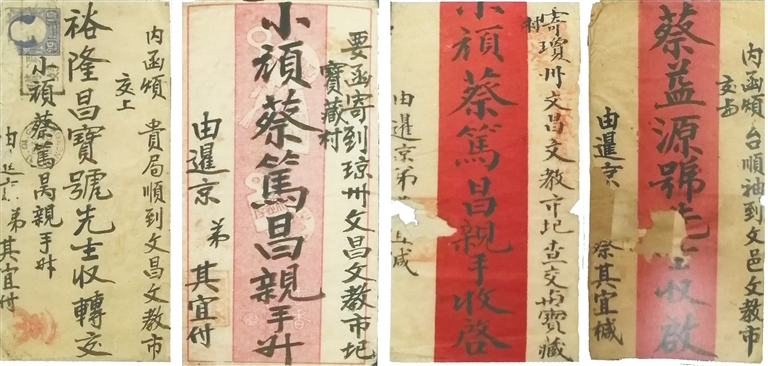 內函頌
貴局順到文昌文教市
交上
裕隆昌寶號先生收轉交
小頑蔡篤昌親手升
弟其宜付
要函寄到琼州文昌文教市圯
寶藏村
小頑蔡篤昌親手升
由暹京
弟
其宜付
寄瓊州文昌文教市圯查交與寶藏
村
小頑蔡篤昌親手收啓
由暹京弟
內函頌
台順袖到文邑文教市
交與
蔡益源號先生收啟
由暹京
蔡其宜椷